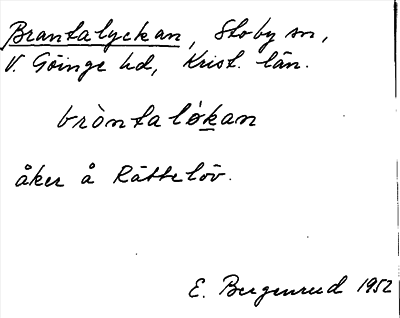 Brantalyckan, Stoby sn,
V. Göinge hd, Krist. län.
bròntalókan
åker å Rättelöv.
E. Bergenrud 1952